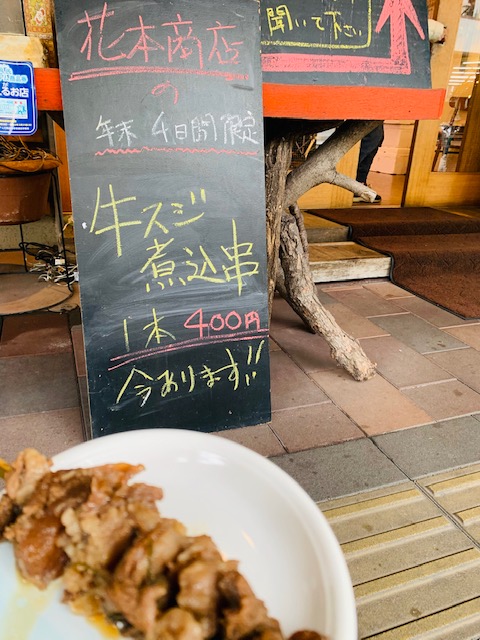 花本商店
の
年末 4日間限定
牛スジ
煮込串
1本 400円
今あります!!
聞いて下さい
るお店